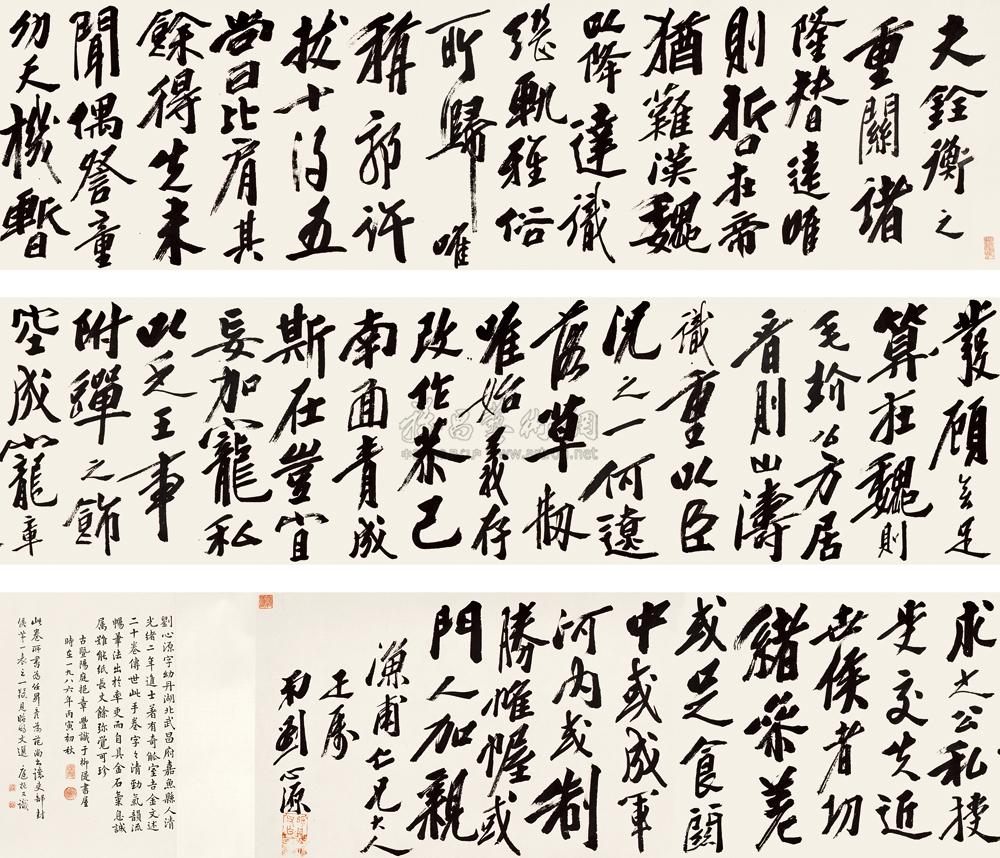 夫銓衡之
重關諸
隆替遠唯
則哲在帝
猶難漢魏
以降達識
繼軌雅俗
所歸唯
稱郭許
拔十得五
尚曰比肩其
餘得失未
聞偶詧童
幼天機暫
發顧無足
算在魏則
毛玠公方居
晉則山濤
識重以臣
況之一何遼
落草刱
唯始義存
改作恭己
南面責成
斯在豈宜
妄加寵私
以乏王事
附蟬之飾
空成寵章
求之公私授
受交失近
世侯者功
緒參差
或足食關
中或成軍
河內或制
勝帷幄或
門人加親
濂甫仁兄大人
正屬
弟劉心源
劉心源字幼丹湖北武昌府嘉魚縣人清
光緒二年進士著有奇觚室吉金文述
二十卷傳世此手卷字々清勁氣韻流
暢筆法出於率更而自具金石氣息誠
屬難能紙長文餘弥覺可珍
古暨陽庭章豐識于柳隄書屋
時在一九八六年丙寅初秋
此卷所書為任昇彥為范尚書讓吏部封
侯第一表之一段見昭明文選 庭又識